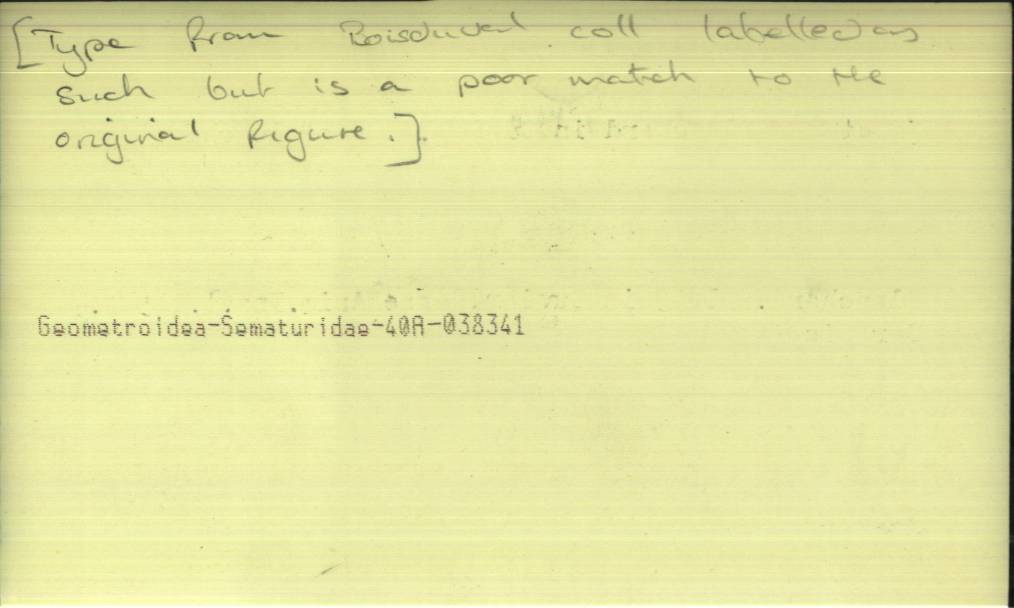 [Type from Boisduval coll labelled as
such but is a poor match to the
original figure.]
Geometroidea-Sematuridae-40A-038341